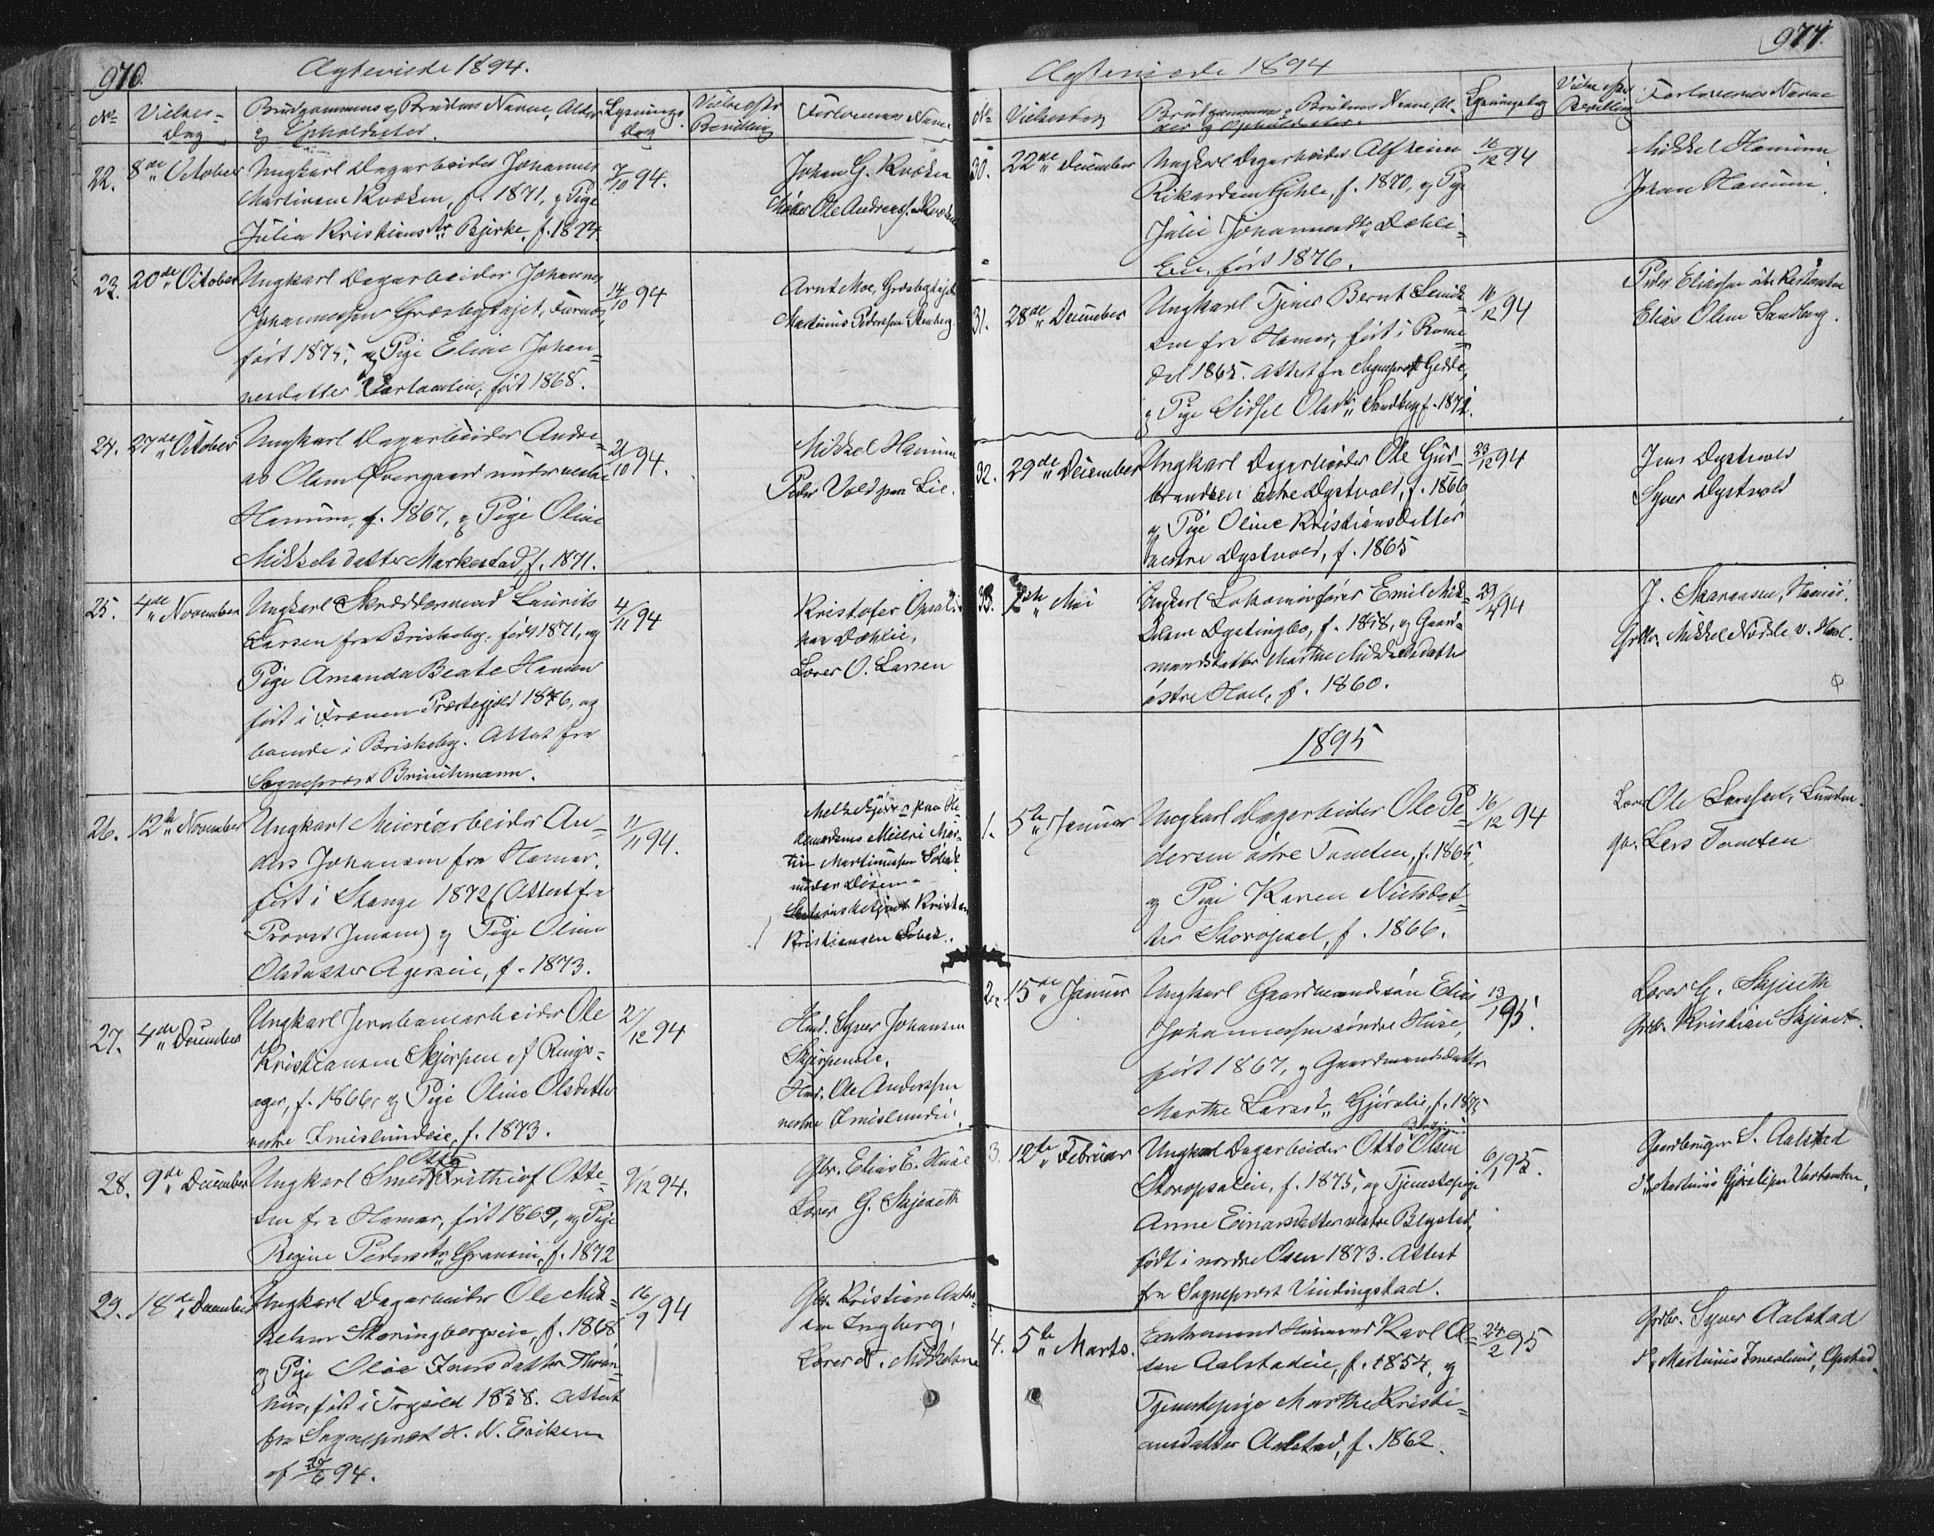 970.
Ægteviede 1894.
No Vielses-Dag
Brudgommens og Brudens Navne, Alder og Opholdsted.
Lysnings Dag
Vielse efter Bevilling
Forlovernes Navne
22. 8de October
Ungkarl Dagarbeider Johannes
Martinsen Kvæken, f. 1871, og Pige
Julia Kristiansdtr Bjerke, f. 1874
7/10 94.
Johan G. Kvæken
Ole Andreas
23. 20de October
Ungkarl Dagarbeider Johannes
Johannessen Græsbergtajet, Furnes,
født 1875, og Pige Eline Johan-
nesdatter Vartomten, født 1868.
14/10 94
Arnt Moe,
Martinius Pedersen Stenberg
24. 27de October
Ungkarl Dagarbeider Andre-
as Olsen Øvergaard under vestre
Hanum, f. 1867, og Pige Oline
Mikkelsdatter Markestad, f. 1871.
21/10 94.
Mikkel Hanum
Peder Lie.
25. 4de November
Ungkarl Skræddersvend Laurits
Larsen fra Briskeby, født 1871, og
Pige Amanda Beate Hansen
født i Fränen Præstegjeld 1876, og
boende i Briskeby. Attest fra
Sogneprest Brinchmann.
4/11 94
Kristofer
Dæhlie,
Lærer O. Larsen
26. 12te November
Ungkarl Meieriarbeider An-
ders Johansen fra Hamar,
født i Stange 1872 (Attest fra
Provst Jensen) og Pige Oline
Olsdatter Agerseie, f. 1873.
11/11 94.
paa He-
demarkens Meieri Mar-
tin Martinussen
under Disen
Kristian
Kristiansen
27. 4de December
Ungkarl Jernbanearbeider Ole
Kristiansen Skjerpen af Rings-
ager, f. 1866, og Pige Oline Olsdatter
vestre Imislundeie, f. 1873.
2/12 94
Hmd. Syver Johansen
Skjerpeneie.
Hmd. Ole Anderssen
vestre Imislundeie.
28. 9de December
Ungkarl Smed Frithiof Otto
Otte-
sen fra Hamar, født 1869, og Pige
Regine Pedersdtr Graneie, f. 1872
9/12 94.
Gbr. Elias E. Huse
Lærer G. Skjeseth
29. 18de December
Ungkarl Dagarbeider Ole Mik-
kelsen Skoningbergseie, f. 1868
og Pige Olea Jensdatter
født i Trysild 1868. Attest
fra Sogneprest H. N. Eriksen
af 94.
16/9 94
Gbr. Kristian
sen Ingberg,
Lærer N. Mikkelsen
977.
Ægteviede 1894
No Vielsesdag
Brudgommens og Brudens Navne, Al-
der og Opholdsted.
Lysningsdag
Vielse efter Bevilling
Forlovernes Navne
30. 22de December
Ungkarl Dagarbeider Alf
Rikardsen Gihle, f. 1870, og Pige
Julie Johannesdtr Dæhli-
Eie, født 1876.
16/12 94
Mikkel Hanum
Johan Hanum.
31. 28de December
Ungkarl Tjener Bernt
sen fra Hamar, født i Roms-
dal 1865. Attest fra Sogneprest
og Pige Sidsel Olsdtr Sandberg f. 1872.
16/12 94
Peder Eliassen
Elias Olsen Sandberg.
32. 29de December
Ungkarl Dagarbeider Ole Gud-
brandsen østre Dystvold, f. 1866
og Pige Oline Kristiansdatter
vestre Dystvold, f. 1865
23/12 94
Jens Dystvold
Syver Dystvold
33. Mai
Ungkarl Lokomotivfører Emil Mik-
kelsen Dystingbo, f. 1858, og Gaard-
mandsdatter Marthe Mikkelsdatter
østre Hoel, f. 1860.
29/4 94
J. Hamar.
Grdbr. Mikkel Nordli v. Hoel.
1895
1. 5te Januar
Ungkarl Dagarbeider Ole Pe-
dersen øvre Tomten, f. 1865,
og Pige Karen Nielsdat-
ter Storopsal, f. 1866.
16/12 94
Lærer Ole Larssen,
Gbr. Lars Tomten
2. 15de Januar
Ungkarl Gaardmandssøn Elias
Johannessen søndre Huse,
født 1867, og Gaardmandsdatter
Marthe Larsdtr Gjørslie, f. 1875
13/1 95.
Lærer G. Skjeseth
Grdbr. Kristian Skjeset.
3. 12te Februar
Ungkarl Dagarbeider Otto Olsen
Storopsaleie, f. 1875, og Tjenestepige
Anne Einarsdatter vestre Blystad,
født i nordre Osen 1873. Attest
fra Sogneprest Vindingstad.
6/1 95.
Gaardbruger S. Aalstad
Martinius Vartomten,
4. 5te Marts.
Enkemand Husmand Karl Ol-
sen Aalstadeie, f. 1854, og
Tjenestepige Marthe Kristi-
ansdatter Aalstad, f. 1862.
24/2 95
Grdbr. Syver Aalstad
Martinius Imerslund, Opstad.